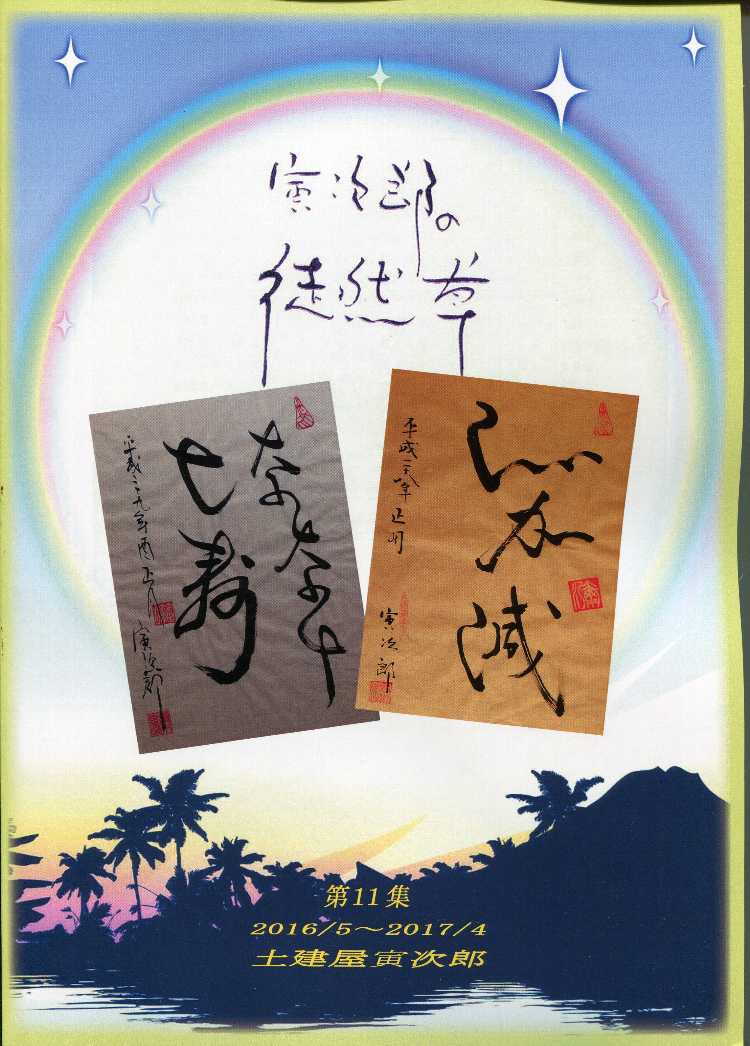 寅次郎の
徒然草
七寿
平成二九年酉正月 寅次郎
加減
平成二八年正月
寅次郎
第11集
2016/5～2017/4
土建屋寅次郎